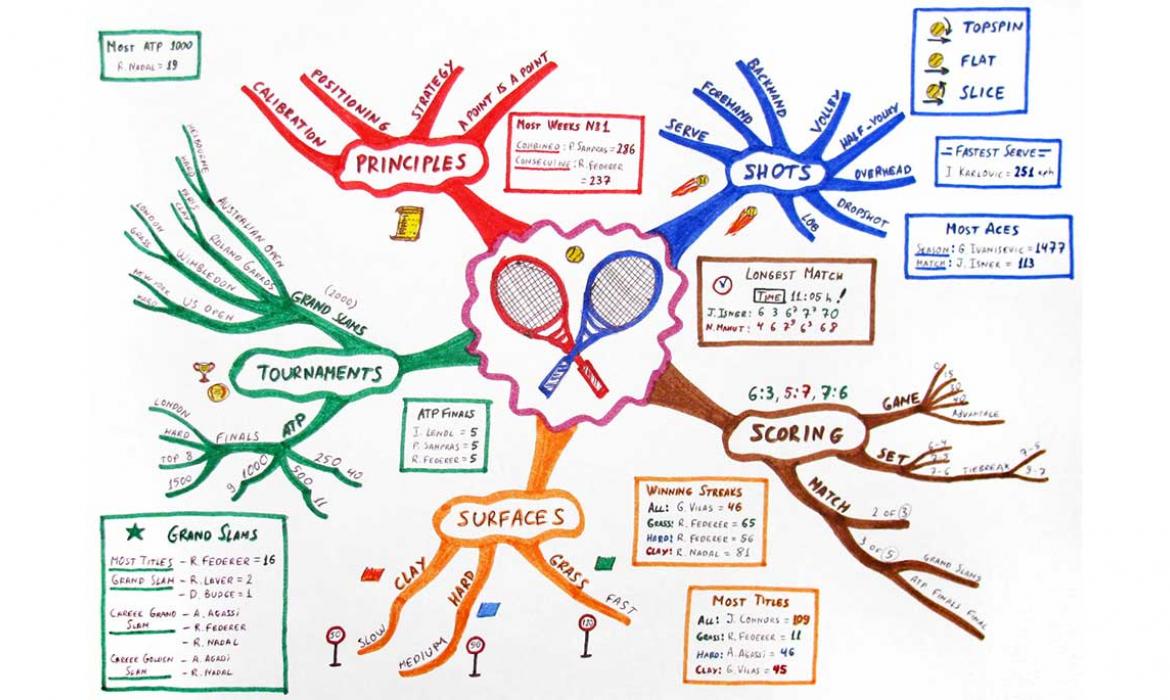 MOST ATP 1000
R. NADAL = 19
CALIBRATION
POSITIONING
STRATEGY
A POINT IS A POINT
PRINCIPLES
MOST WEEKS Nº1
COMBINED: P. SAMPRAS = 286
CONSECUTIVE: R. FEDERER
= 237
SERVE
FOREHAND
BACKHAND
VOLLEY
HALF-VOLLEY
OVERHEAD
DROPSHOT
LOB
SHOTS
TOPSPIN
FLAT
SLICE
=FASTEST SERVE=
I. KARLOVIC = 251 kph
MOST ACES
SEASON: G. IVANISEVIC = 1477
MATCH: J. ISNER = 113
LONGEST MATCH
TIME 11:05 h!
J. ISNER: 6 3 6⁷ 7⁷ 70
N. MAHUT: 4 6 7⁹ 6³ 68
MELBOURNE
HARD
AUSTRALIAN OPEN
PARIS
CLAY
ROLAND GARROS
LONDON
GRASS
WIMBLEDON
NEW YORK
HARD
US OPEN
(2000)
GRAND SLAMS
TOURNAMENTS
ATP
FINALS
LONDON
HARD
TOP 8
1500
1000
9
500
11
250
40
ATP FINALS
I. LENDL = 5
P. SAMPRAS = 5
R. FEDERER = 5
6:3, 5:7, 7:6
SCORING
GAME
0
15
30
40
ADVANTAGE
SET
6-4
7-5
7-6
TIEBREAK
7-5
9-7
MATCH
2 OF 3
3 OF 5
GRAND SLAMS
ATP FINALS FINAL
SURFACES
CLAY
SLOW
HARD
MEDIUM
GRASS
FAST
50
90
WINNING STREAKS
ALL: G. VILAS = 46
GRASS: R. FEDERER = 65
HARD: R. FEDERER = 56
CLAY: R. NADAL = 81
MOST TITLES
ALL: J. CONNORS = 109
GRASS: R. FEDERER = 11
HARD: A. AGASSI = 46
CLAY: G. VILAS = 45
GRAND SLAMS
MOST TITLES - R. FEDERER = 16
GRAND SLAM - R. LAVER = 2
- D. BUDGE = 1
CAREER GRAND SLAM - A. AGASSI
- R. FEDERER
- R. NADAL
CAREER GOLDEN SLAM - A. AGASI
- R. NADAL